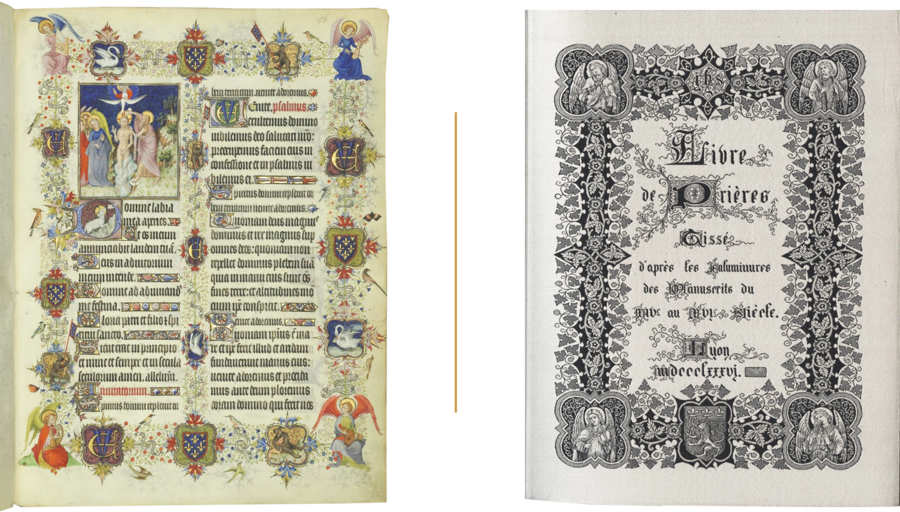 Domine labia
mea aperies.
Et os meum
annunciabit laudem tuā.
Deus in adiutorium
meum intende.
Domine ad adiuuandū
me festina.
Gloria patri et filio et spi
ritui sancto.
Sicut erat in principio
et nunc et semper et in secula
seculorum amen. alleluya.
Inuitatorium.
Spiritus domini repleuit or
bem terrarum uenite adoremus.
Venite. psalmus
exultemus domino
iubilemus deo salutari nr̄o:
preoccupemus faciem eius in
confessione et in psalmis iu
bilemus ei.
Spiritus domini repleuit or
bem terrarum uenite adoremus.
Quoniam deus magnus
dominus et rex magnus sup
omnes deos: quoniam non
repellet dominus plebem suā
quia in manu eius sunt oēs
fines terre: et altitudines mō
tium ipse conspicit.
Venite adoremus.
Quoniam ipsius ē ma
re et ipse fecit illud et aridam
fundauerunt manus eius:
uenite adoremus et proceda
mus ante deum ploremus
coram domino qui fecit nos
ihs
Livre
de Prières
Tissé
d'après les Enluminures
des Manuscrits du
XIVe au XVIe Siècle.
Lyon
mdccclxxxvi.